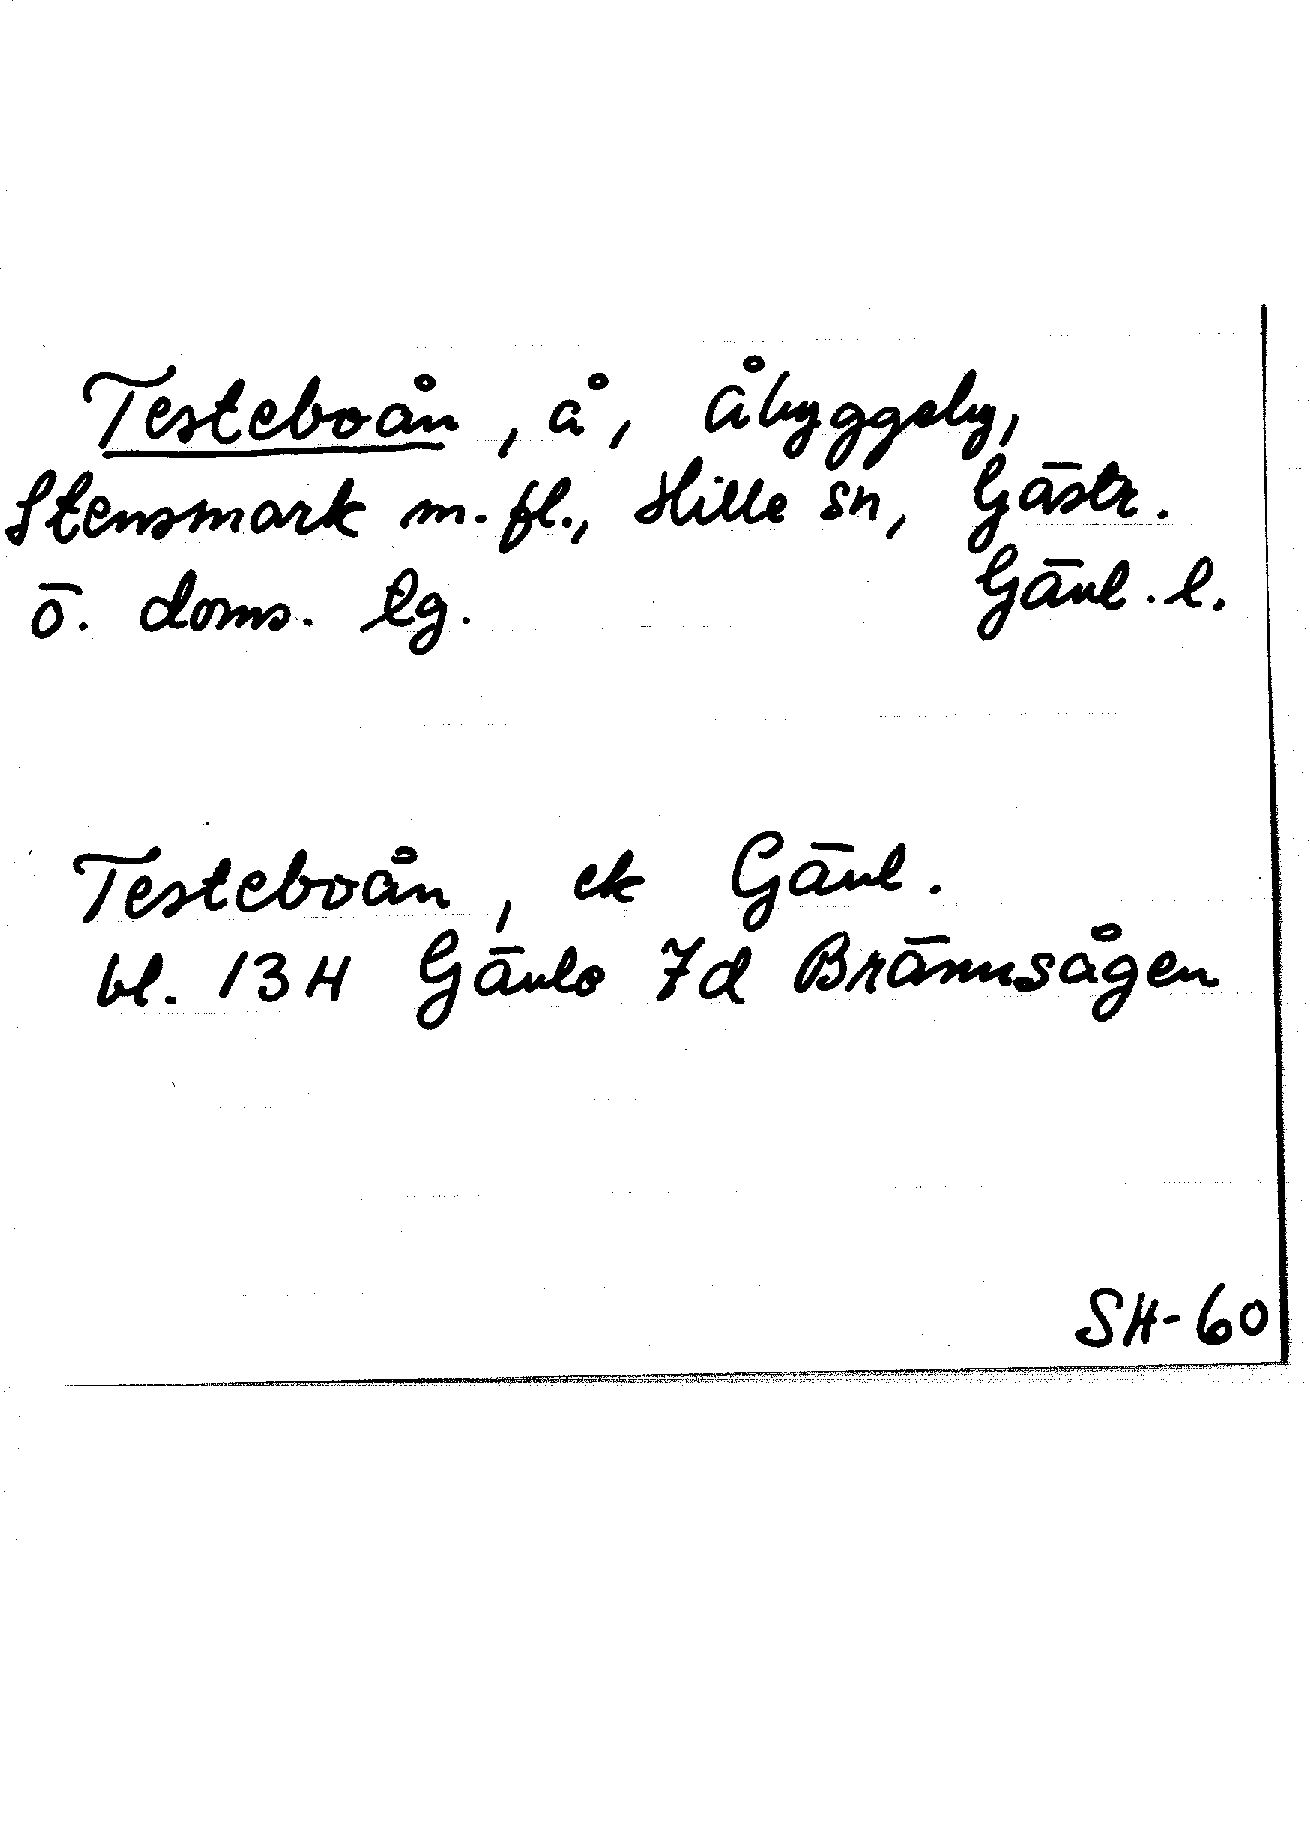 Testeboån, å, Åbyggeby,
Stensmark m. fl., Hille sn, Gästr.
ö. doms. lg. Gävl. l.
Testeboån, ek Gävl.
bl. 13H Gävle 7d Brännsågen
SH-60